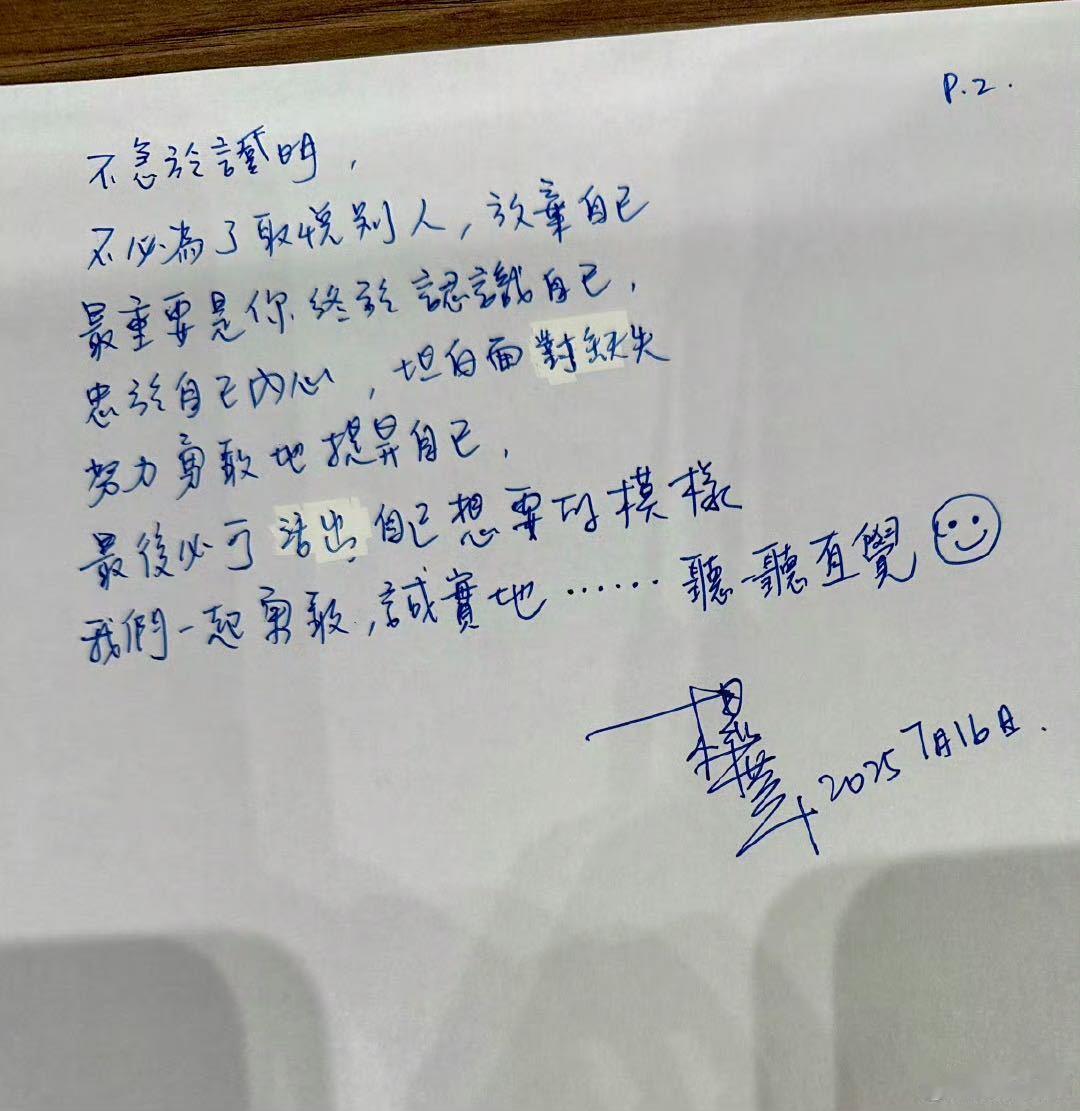 P.2.
不急於證明，
不必為了取悅別人，放棄自己
最重要是你終於認識自己，
忠於自己內心，坦白面對缺失
努力勇敢地提昇自己，
最後必可活出自己想要的模樣
我們一起勇敢，誠實地……聽聽直覺
2025 7月16日.